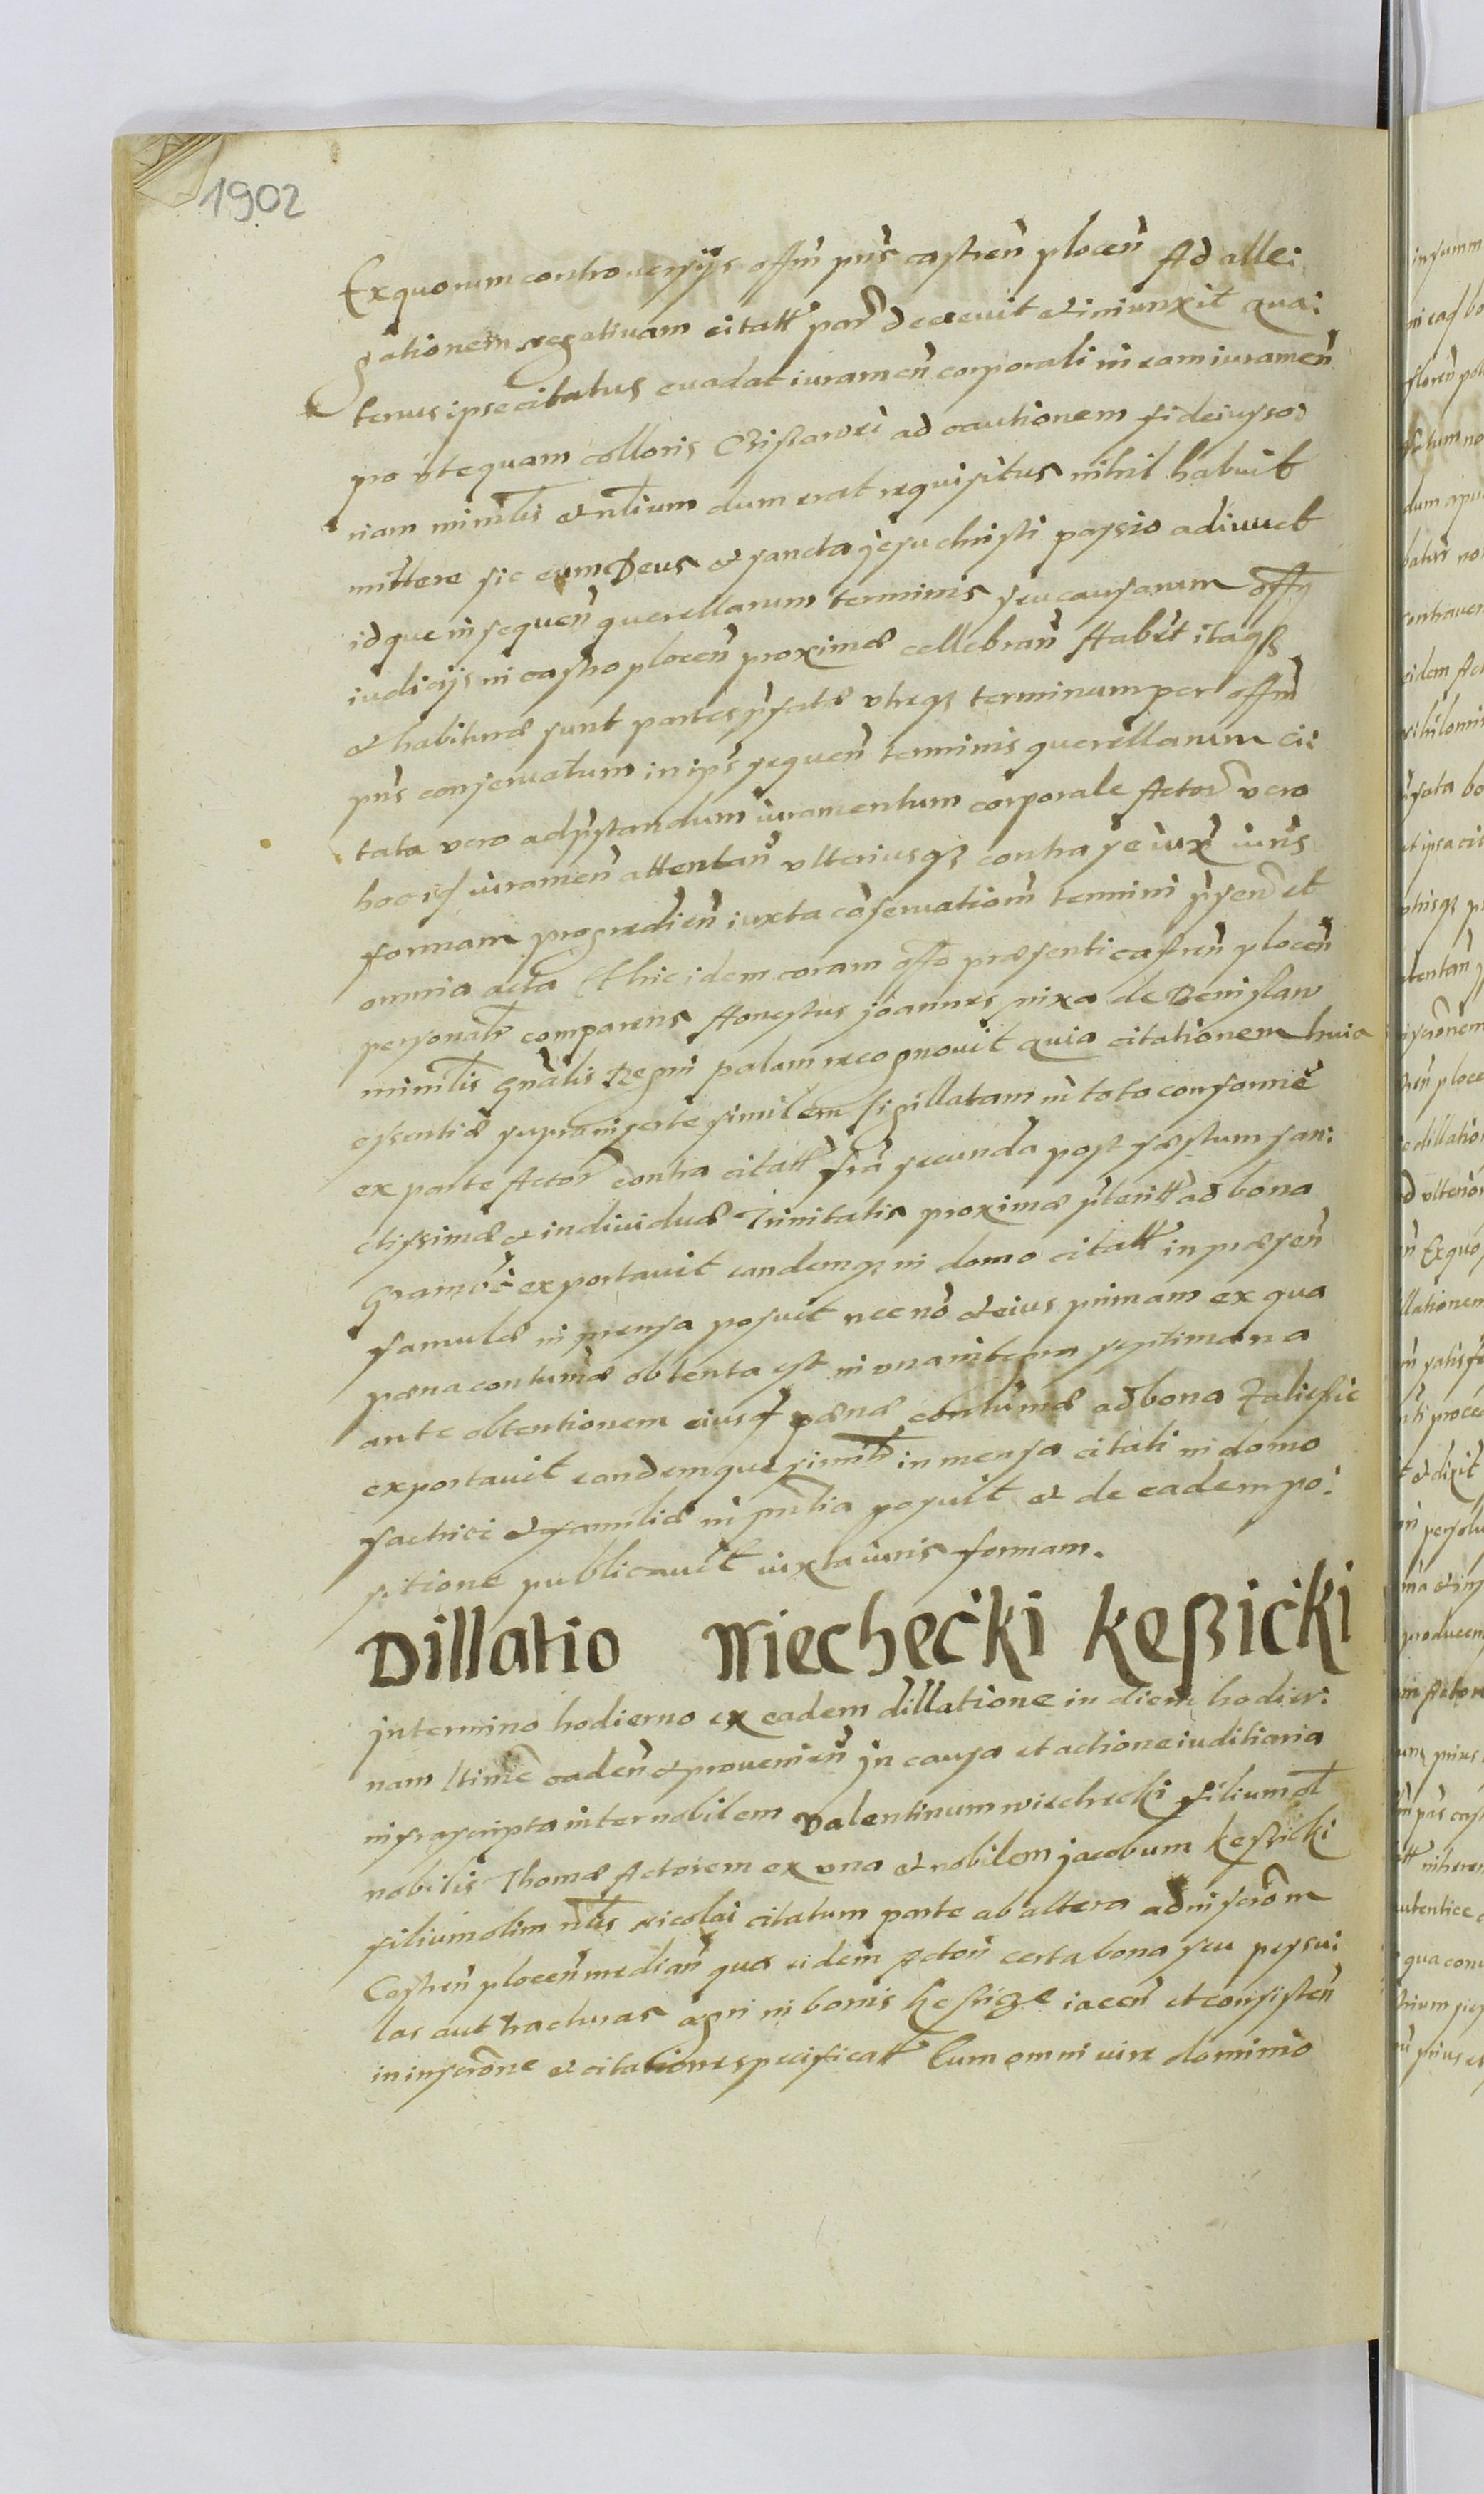 1902
Ex quorum controuersijs offm pns castren plocen Ad alle:
gationem negatiuam citatt par decreuit et iniunxit qua:
tenus ipse citatus euadat iuramen corporali in eam iuramen
pro vt equam colloris ad cautionem fideiusso:
riam minrlis et nlium dum erat requisitus nihil habuit
mittere sic eum Deus et sancta Jesu christi passio adiuuet
idque in sequen querellarum terminis seu causarum offy
iudicijs in castro plocen proximae cellebran Habet itaqz
et habiturae sunt partes pfatae vtrqz terminum per offm
pns conseruatum in ips sequen terminis querellarum ci:
tata vero ad pstandum iuramentum corporale Actor vero
hoc id iuramen attentan vlteriusqz contra se iux iuris
formam progredien iuxta conseruationm termini psen et
omnia acta Et hic idem coram offo praesenti castren plocen
personalr comparens Honestus joannes nixa de Denislaw
minrlis Gnalis Regni palam recognouit quia citationem huic
essentiae supra inserte similem sigillatam in toto conforme
ex parte Actor contra citatt fria secunda post faestum san:
ctissimae et indiuiduae Trinitatis proximae pteritt ad bona
exportauit eandemqz in domo citatt in praesen
famulae in mensa posuit nec no et eius primam ex qua
paena contumae obtenta est in vna integra septimana
ante obtentionem eiusd paenae contumae ad bona
exportauit eandemque similr in mensa citati in domo
factrici et familiae in pntia posuit et de eadem po:
sitione publicauit iuxta iuris formam.
Dillatio Wiechecki Keßicki
jn termino hodierno ex eadem dillatione in diem hodier:
nam ltime caden et prouenien Jn causa et actione iuditiaria
infrascripta inter nobilem Valentinum wiechecki filium ol
nobilis Thomae Actorem ex vna et nobilem jacobum Keßicki
filium olim nlis nicolai citatum parte ab altera ad inscrom
Castren plocen median qua eidem Actori certa bona seu
las aut tracturas agri in bonis iacen et consisten
in inscrone et citatione specificatt Cum omni iure dominio